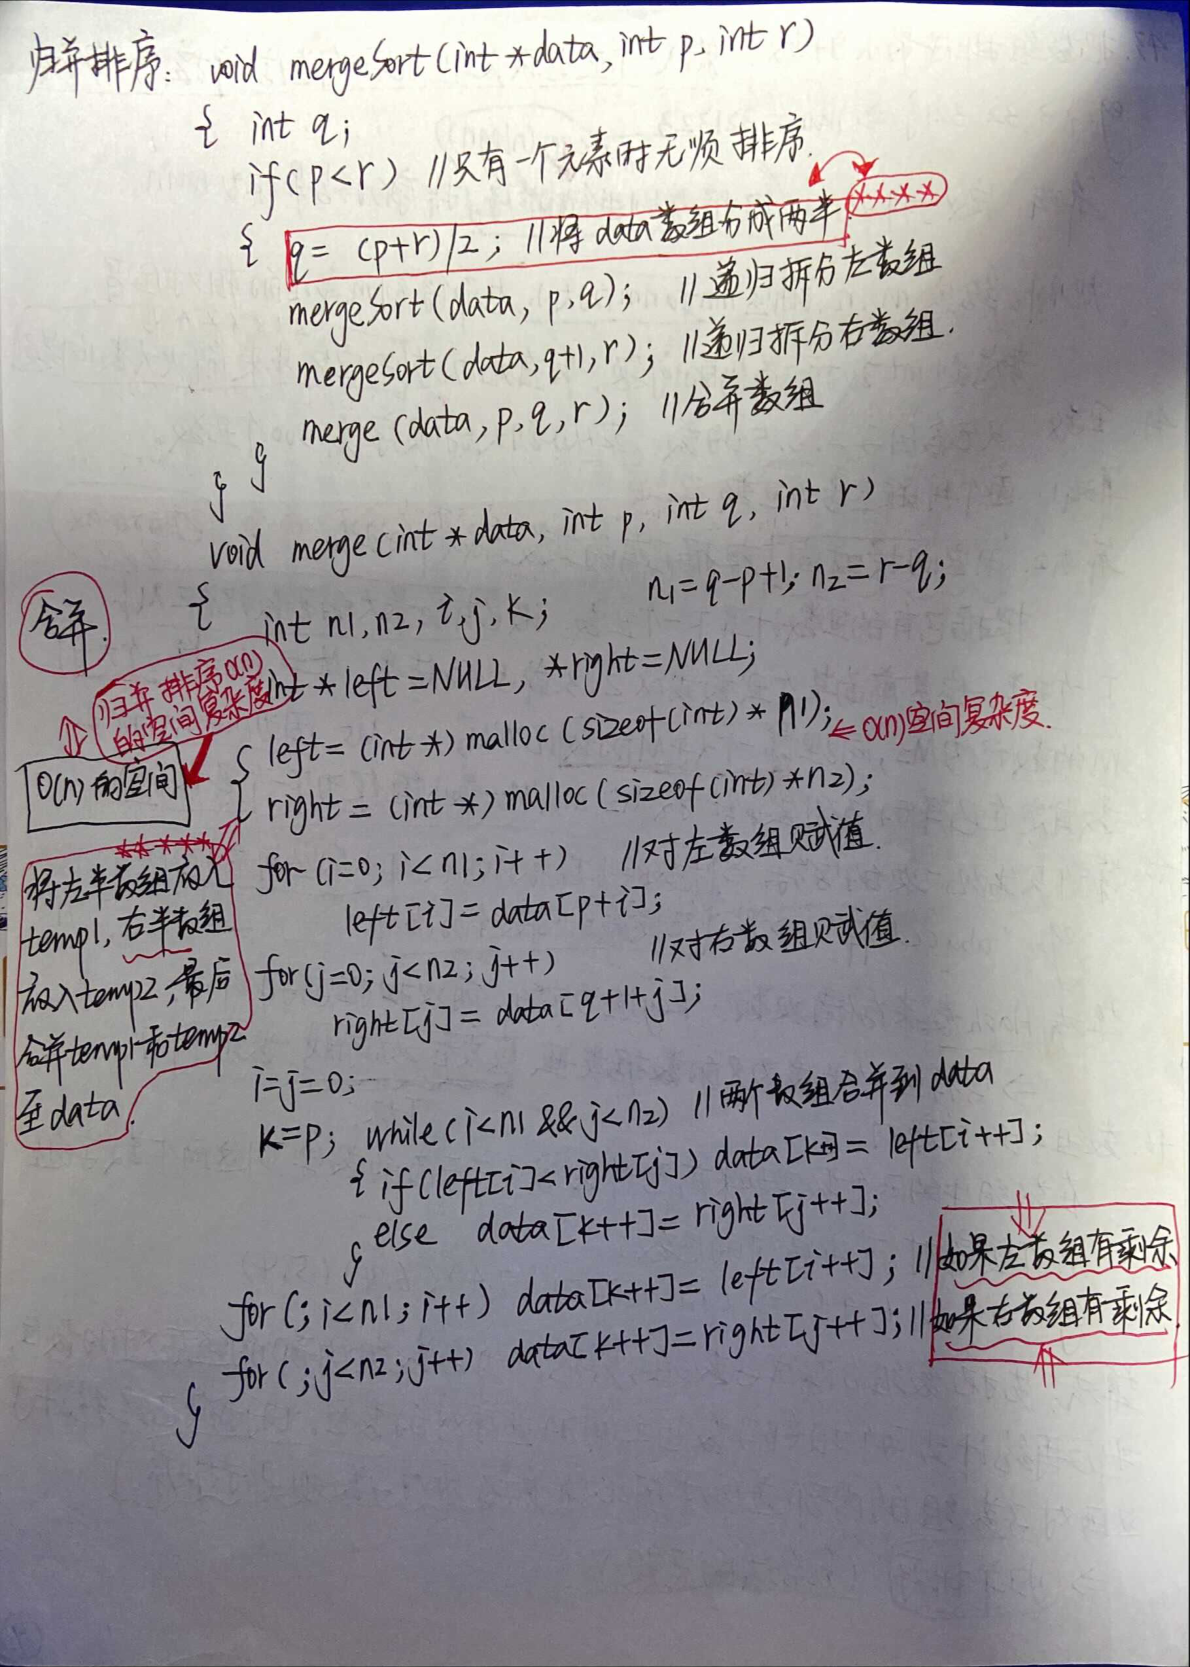 归并排序: void mergeSort(int *data, int p, int r)
{ int q;
if(p<r) //只有一个元素时无须排序.
{ q= (p+r)/2; //将data数组分成两半 ****
mergeSort(data, p,q); //递归拆分左数组
mergeSort(data,q+1,r); //递归拆分右数组.
merge (data, p,q,r); //合并数组
}
}
void merge(int *data, int p, int q, int r)
合并.
{ int n1,n2, i,j,k; n1=q-p+1; n2=r-q;
int *left=NULL, *right=NULL;
归并排序O(n)
的空间复杂度
left= (int*) malloc (sizeof(int) * n1); ← O(n)空间复杂度.
O(n)的空间
right = (int *) malloc(sizeof(int)*n2);
*****
for (i=0; i<n1; i++) //对左数组赋值.
left[i]= data[p+i];
for(j=0; j<n2; j++) //对右数组赋值.
right[j]= data[q+1+j];
将左半数组放入
temp1, 右半数组
放入temp2, 最后
合并temp1和temp2
至data.
i=j=0;
k=p; while(i<n1 && j<n2) //两个数组合并到data
{ if(left[i]<right[j]) data[k++]= left[i++];
else data[k++]= right[j++];
}
for(; i<n1; i++) data[k++]= left[i++]; //如果左数组有剩余
for( ;j<n2;j++) data[k++]=right[j++]; //如果右数组有剩余.
}